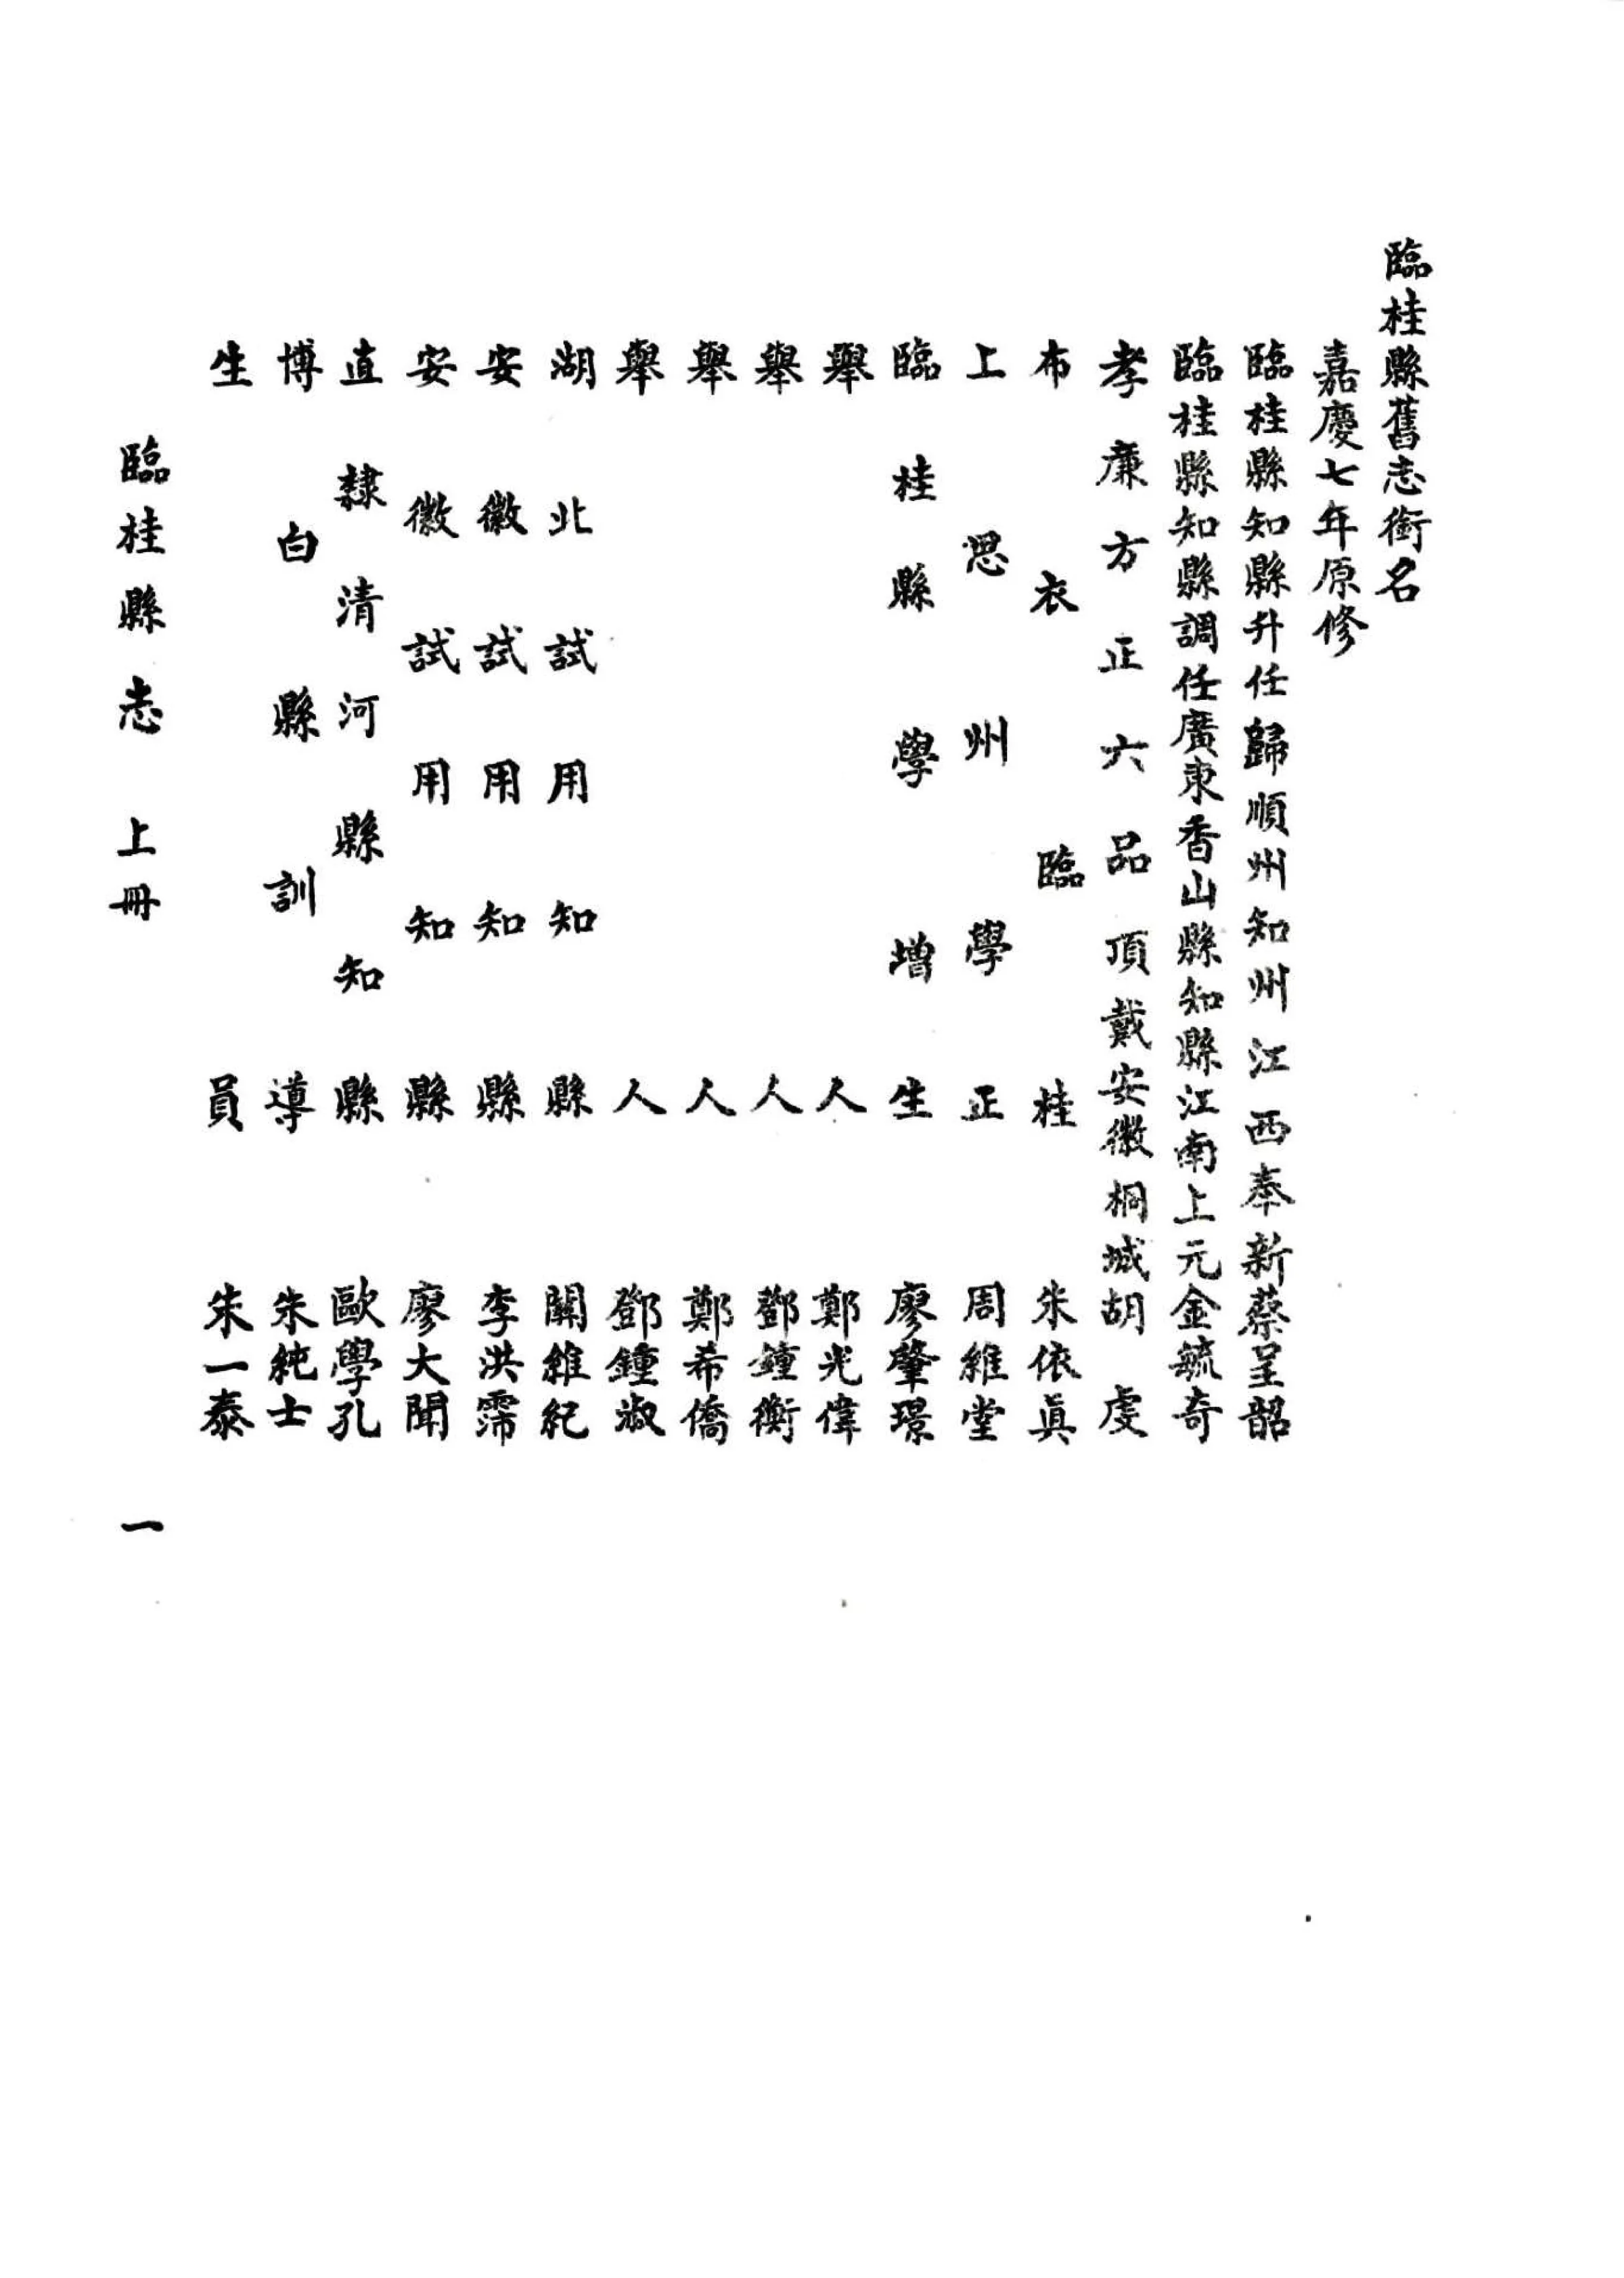 臨桂縣舊志銜名
嘉慶七年原修
臨桂縣知縣升任歸順州知州江西奉新蔡呈韶
臨桂縣知縣調任廣東香山縣知縣江南上元金毓奇
孝廉方正六品頂戴安徽桐城胡虔
布衣臨桂朱依真
上思州學正周維堂
臨桂縣學增生廖肇璟
舉人鄭光偉
舉人鄧鐘衡
舉人鄭希僑
舉人鄧鍾淑
湖北試用知縣關維紀
安徽試用知縣李洪霈
安徽試用知縣廖大聞
直隸清河縣知縣歐學孔
博白縣訓導朱純士
生員朱一泰
臨桂縣志 上冊 一